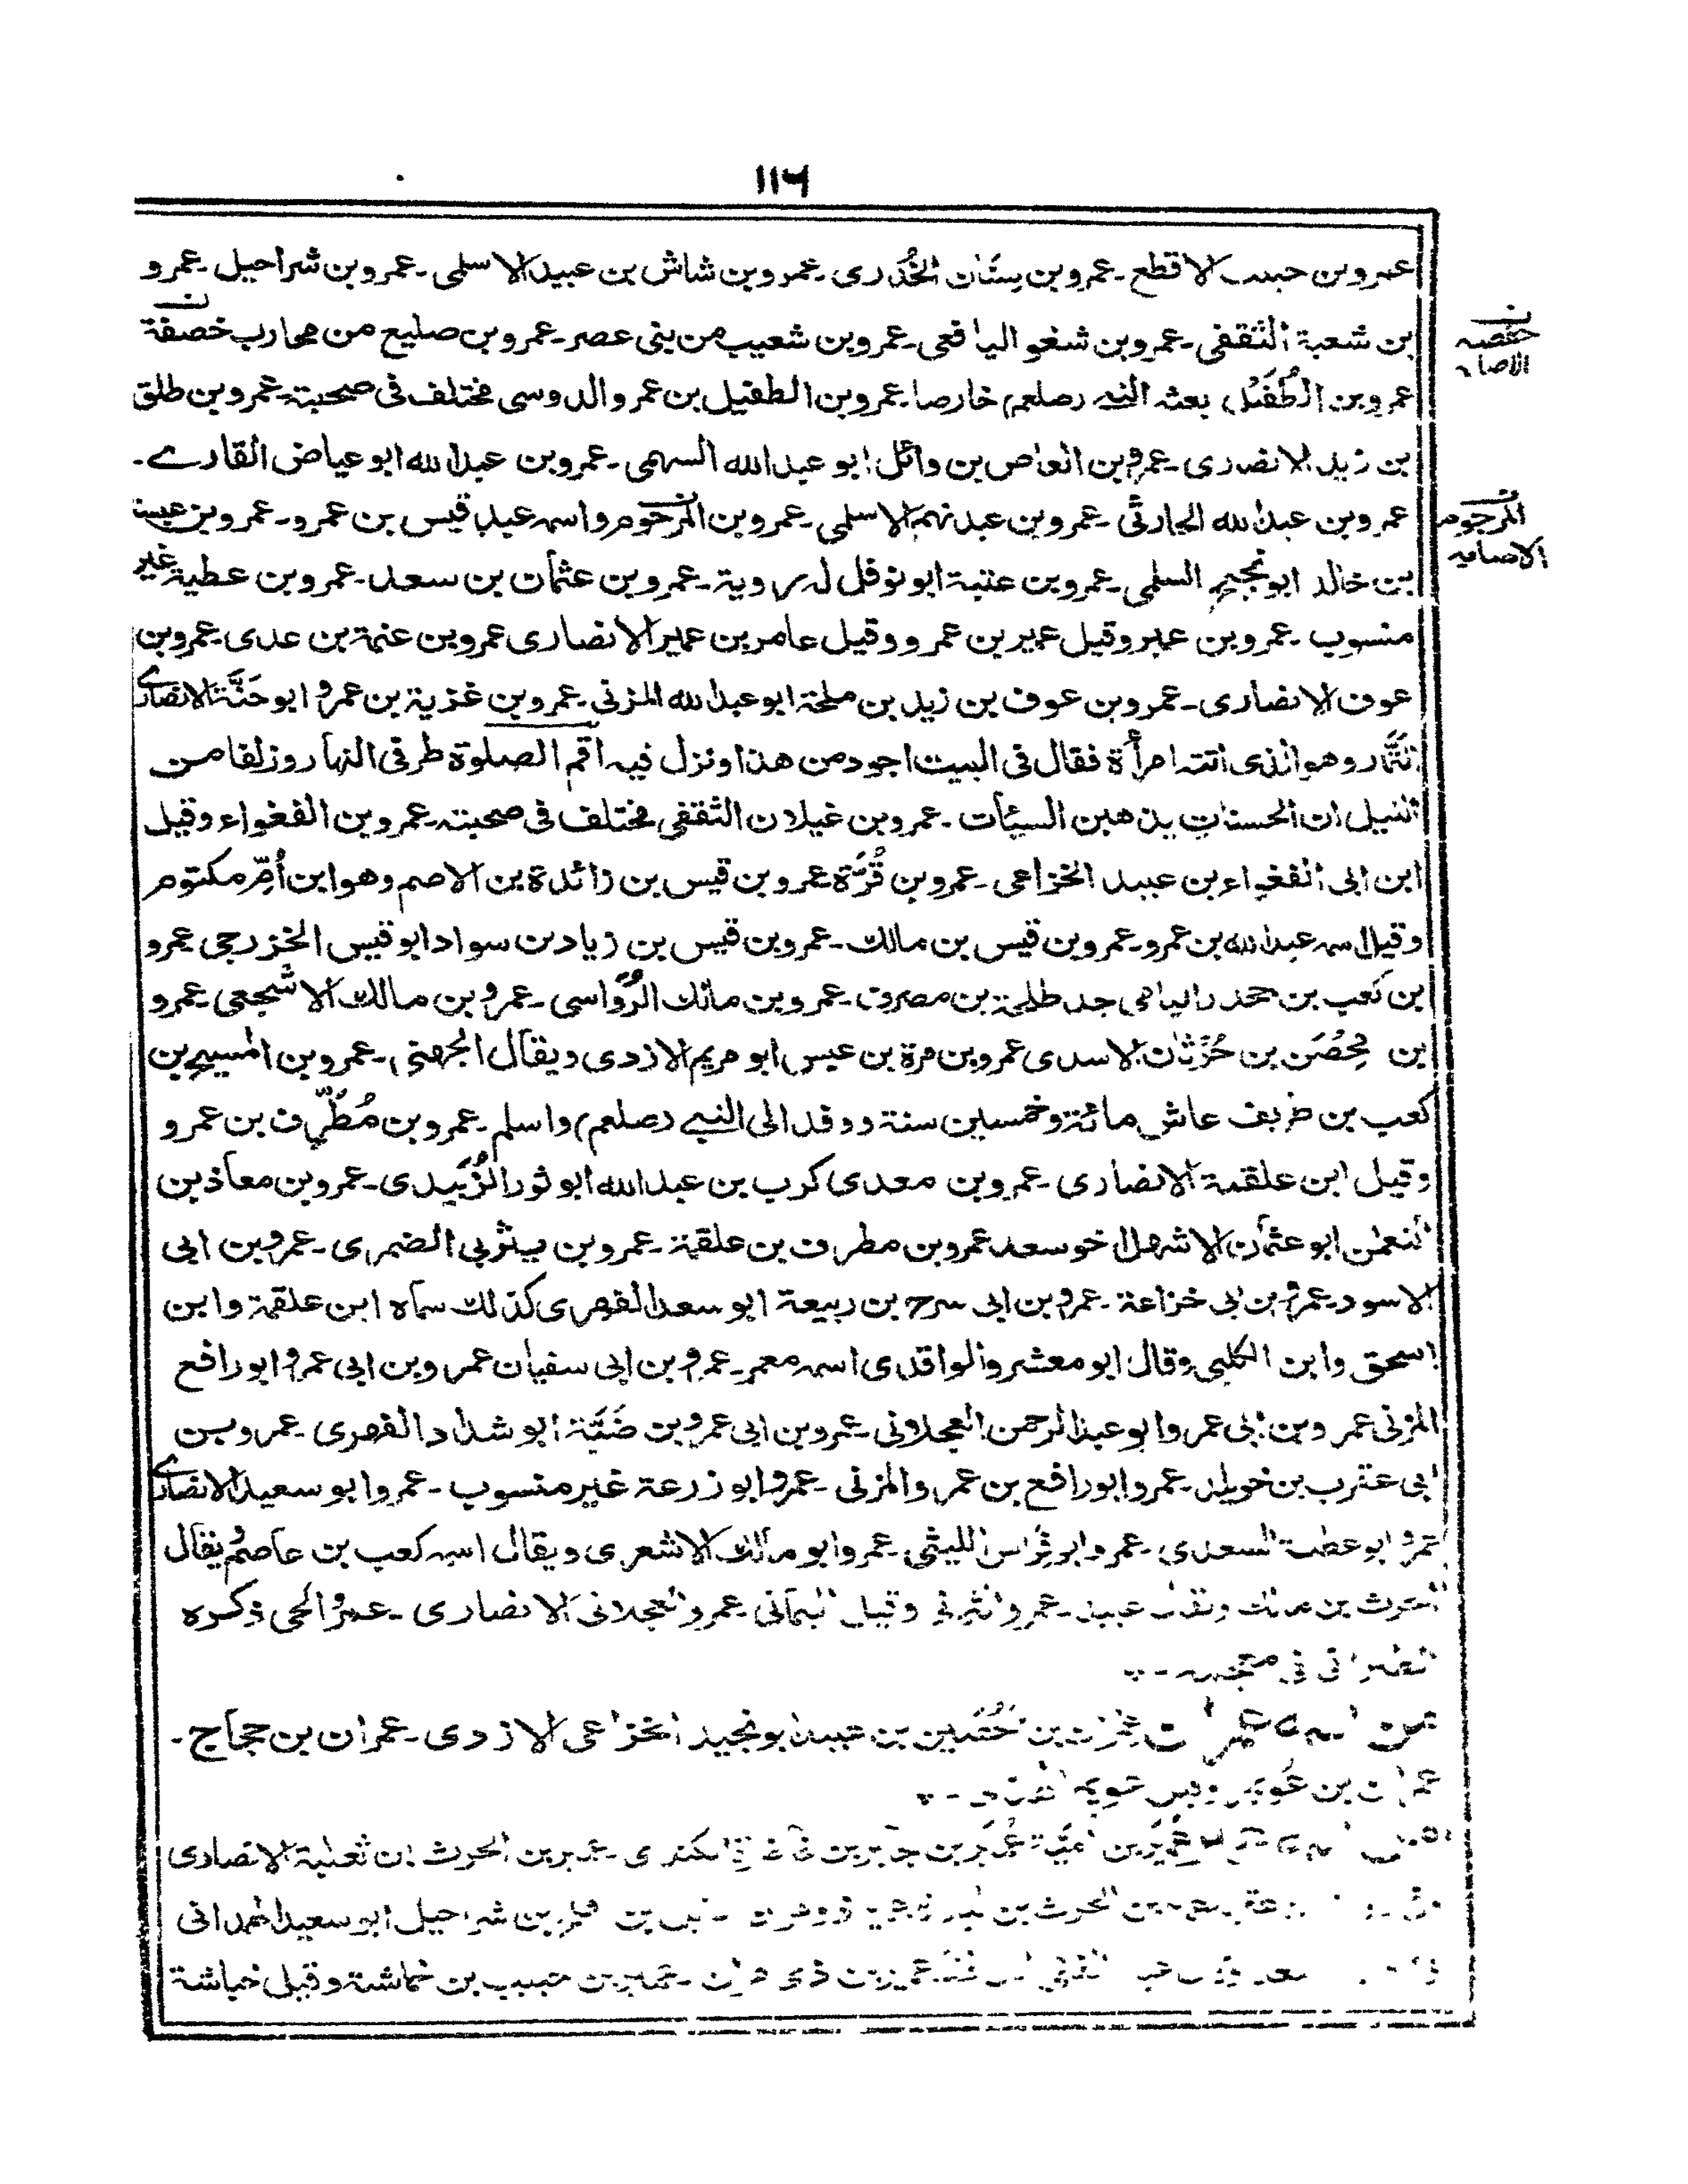 ١١٦
عمرو بن حبيب الاقطع ـ عمرو بن سنان الخُدرى ـ عمرو بن شاش بن عبيد الاسلمى ـ عمرو بن شراحيل ـ عمرو
بن شعبة الثقفى ـ عمرو بن شغو اليافعى ـ عمرو بن شعيب من بنى عصر ـ عمرو بن صليع من محارب خصفة
ن
حفصه
الاصابه
عمرو بن الطُفَيل بعثه النبى (صلعم) خارصا ـ عمرو بن الطفيل بن عمرو الدوسى مختلف فى صحبته ـ عمرو بن طلق
بن زيد الانصارى ـ عمرو بن العاص بن وائل ابو عبد الله السهمى ـ عمرو بن عبد الله ابو عياض القارے ـ
عمرو بن عبد الله الحارثى ـ عمرو بن عبد نهم الاسلمى ـ عمرو بن المرحوم واسمه عبد قيس بن عمرو ـ عمرو بن عبسة
ن
المرجوم
الاصابه
بن خالد ابو نجيح السلمى ـ عمرو بن عتبة ابو نوفل له روية ـ عمرو بن عثمان بن سعد ـ عمرو بن عطية غير
منسوب ـ عمرو بن عمير وقيل عمير بن عمرو وقيل عامر بن عمير الانصارى عمرو بن عنمة بن عدى ـ عمرو بن
عوف الانصارى ـ عمرو بن عوف بن زيد بن ملحة ابو عبد الله المزنى ـ عمرو بن غزية بن عمرو ابو حَنَّة الانصارے
التَّمَّار وهو الذى اتته امرأة فقال فى البيت اجود من هذا ونزل فيه اقم الصلوة طرفى النهار وزلفا من
الليل ان الحسنات يذهبن السيأت ـ عمرو بن غيلان الثقفى مختلف فى صحبته ـ عمرو بن الفغواء وقيل
ابن ابى الفغواء بن عبيد الخزاعى ـ عمرو بن قُرَّة عمرو بن قيس بن زائدة بن الاصم وهو ابن اُمِّ مكتوم
وقيل اسمه عبد الله بن عمرو ـ عمرو بن قيس بن مالك ـ عمرو بن قيس بن زياد بن سواد ابو قيس الخزرجى عمرو
بن كعب بن جحدر اليامى جد طلحة بن مصرف ـ عمرو بن مالك الرُّواسى ـ عمرو بن مالك الاشجعى ـ عمرو
بن مِحْصَن بن حُرْثان الاسدى عمرو بن مرة بن عبس ابو مريم الازدى ويقال الجهنى ـ عمرو بن المسيح بن
كعب بن طريف عاش مائة وخمسين سنة ووفد الى النبى (صلعم) واسلم ـ عمرو بن مُطَرِّف بن عمرو
وقيل ابن علقمة الانصارى ـ عمرو بن معدى كرب بن عبد الله ابو ثور الزُّبَيدى ـ عمرو بن معاذ بن
النعمن ابو عثمان الاشهل اخو سعد عمرو بن مطرف بن علقمة ـ عمرو بن يثربى الضمرى ـ عمرو بن ابى
الاسود ـ عمرو بن ابى خزاعة ـ عمرو بن ابى سرح بن ربيعة ابو سعد الفهرى كذلك سماه ابن علقمة وابن
اسحق وابن الكلبى وقال ابو معشر والواقدى اسمه معمر ـ عمرو بن ابى سفيان عمرو بن ابى عمرو ابو رافع
المزنى عمرو بن ابى عمرو ابو عبد الرحمن العجلانى ـ عمرو بن ابى عمرو بن ضَبَّة ابو شداد الفهرى ـ عمرو بن
ابى عقرب بن خويلد ـ عمرو ابو رافع بن عمرو المزنى ـ عمرو ابو زرعة غير منسوب ـ عمرو ابو سعيد الانصارے
عمرو ابو عطية السعدى ـ عمرو ابو فِراس الليثى ـ عمرو ابو مالك الاشعرى ويقال اسمه كعب بن عاصم يقال
الحرث بن مالك ويقال عبيد ـ عمرو الثمالى وقيل اليمانى عمرو العجلانى الانصارى ـ عمرو الجنى ذكره
الطبرانى فى معجمه ـ
من اسمه عمران عمران بن حُصَين بن عبيد ابو نجيد الخزاعى الازدى ـ عمران بن حجاج ـ
عمران بن عويم وقيل عويمر
من اسمه عمير عُمَير بن اُمَيَّة عُمَير بن جابر بن غاضرة الكندى ـ عمير بن الحرث بن ثعلبة الانصارى
بن الحرث بن شراحيل ابو سعيد الهمدانى
عمير بن ذى مران ـ عمير بن حبيب بن خماشة وقيل خباشة